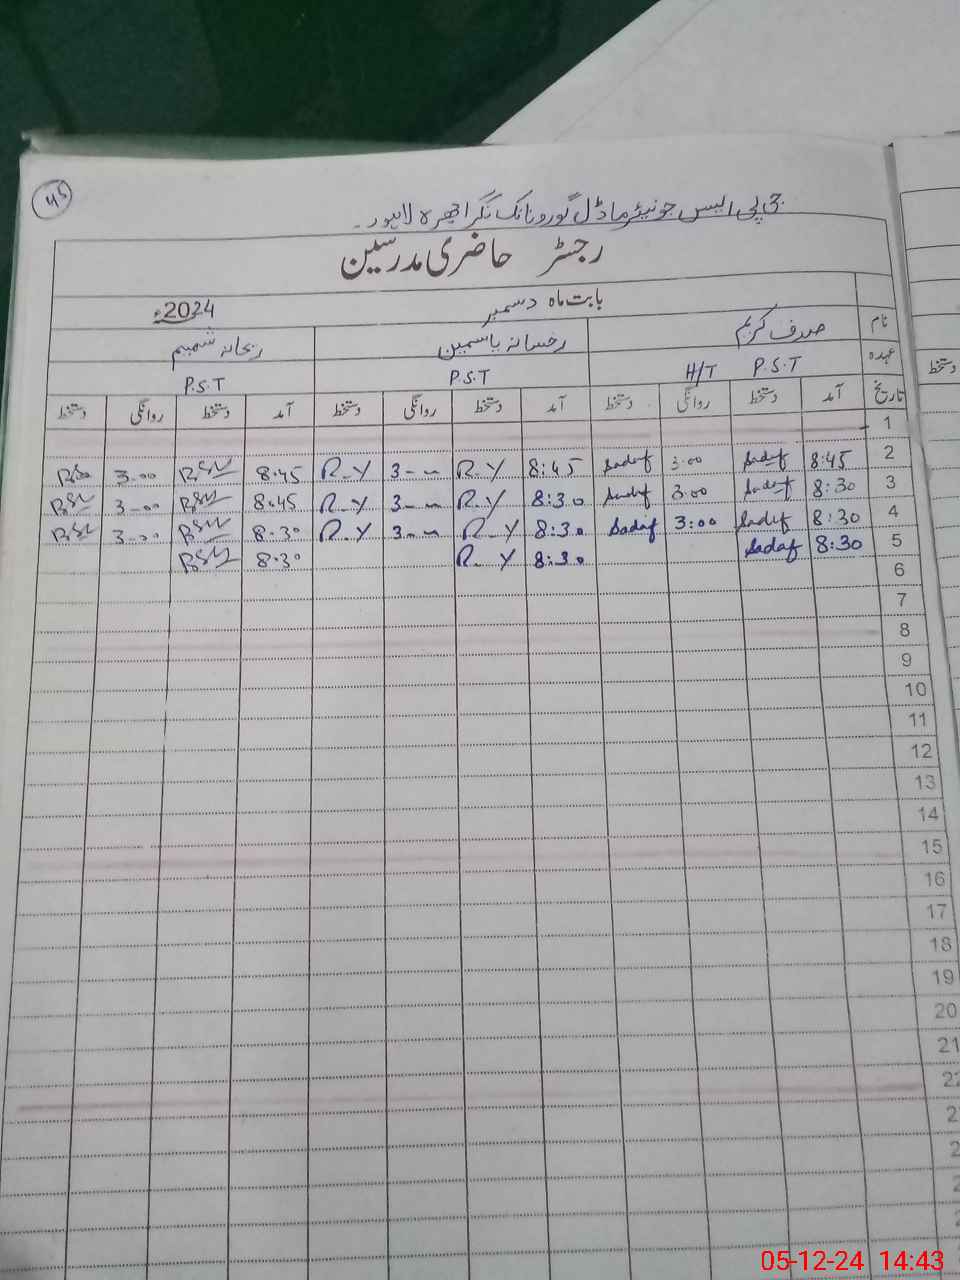 45
جی پی ایس جونیئر ماڈل گورونانک نگر اچھرہ لاہور۔
رجسٹر حاضری مدرسین
بابت ماہ دسمبر 2024ء
نام صدف کریم رخسانہ یاسمین ریحانہ شمیم
عہدہ P.S.T H/T P.S.T P.S.T
تاریخ آمد دستخط روانگی دستخط آمد دستخط روانگی دستخط آمد دستخط روانگی دستخط
دستخط
1
2 8:45 Sadaf 3:00 Sadaf 8:45 R-Y 3-- R-Y 8.45 3.00
3 8:30 Sadaf 3:00 Sadaf 8:30 R-Y 3-- R-Y 8.45 3-00
4 8:30 Sadaf 3:00 Sadaf 8:30 R-Y 3-- R-Y 8.30 3-00
5 8:30 Sadaf 8:30 R-Y 8.30
6
7
8
9
10
11
12
13
14
15
16
17
18
19
20
21
22
05-12-24 14:43